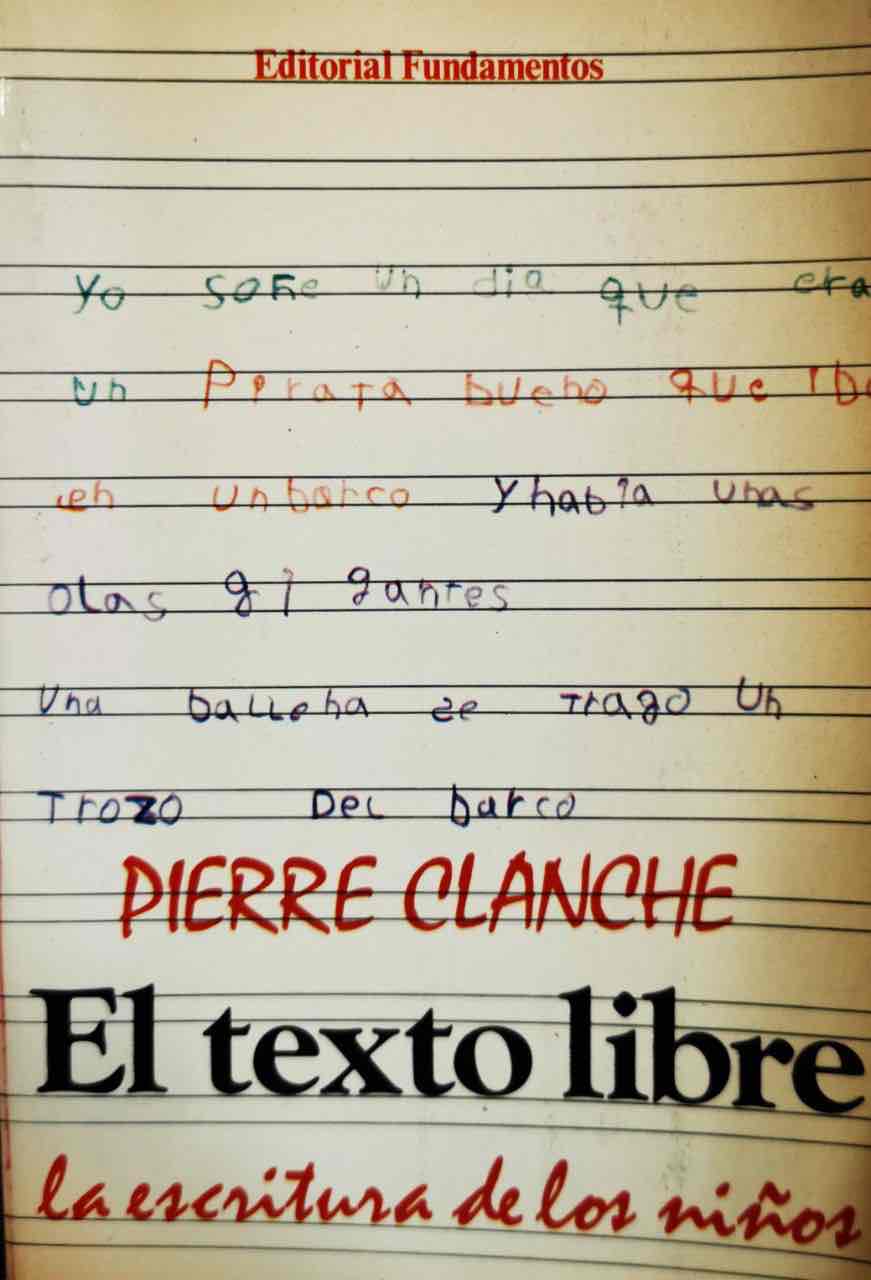 Editorial Fundamentos
yo soñe un dia que era
un Pirata bueno que iba
en un barco y habia unas
olas gi gantes
Una ballena se trago un
Trozo Del barco
PIERRE CLANCHE
El texto libre
la escritura de los niños